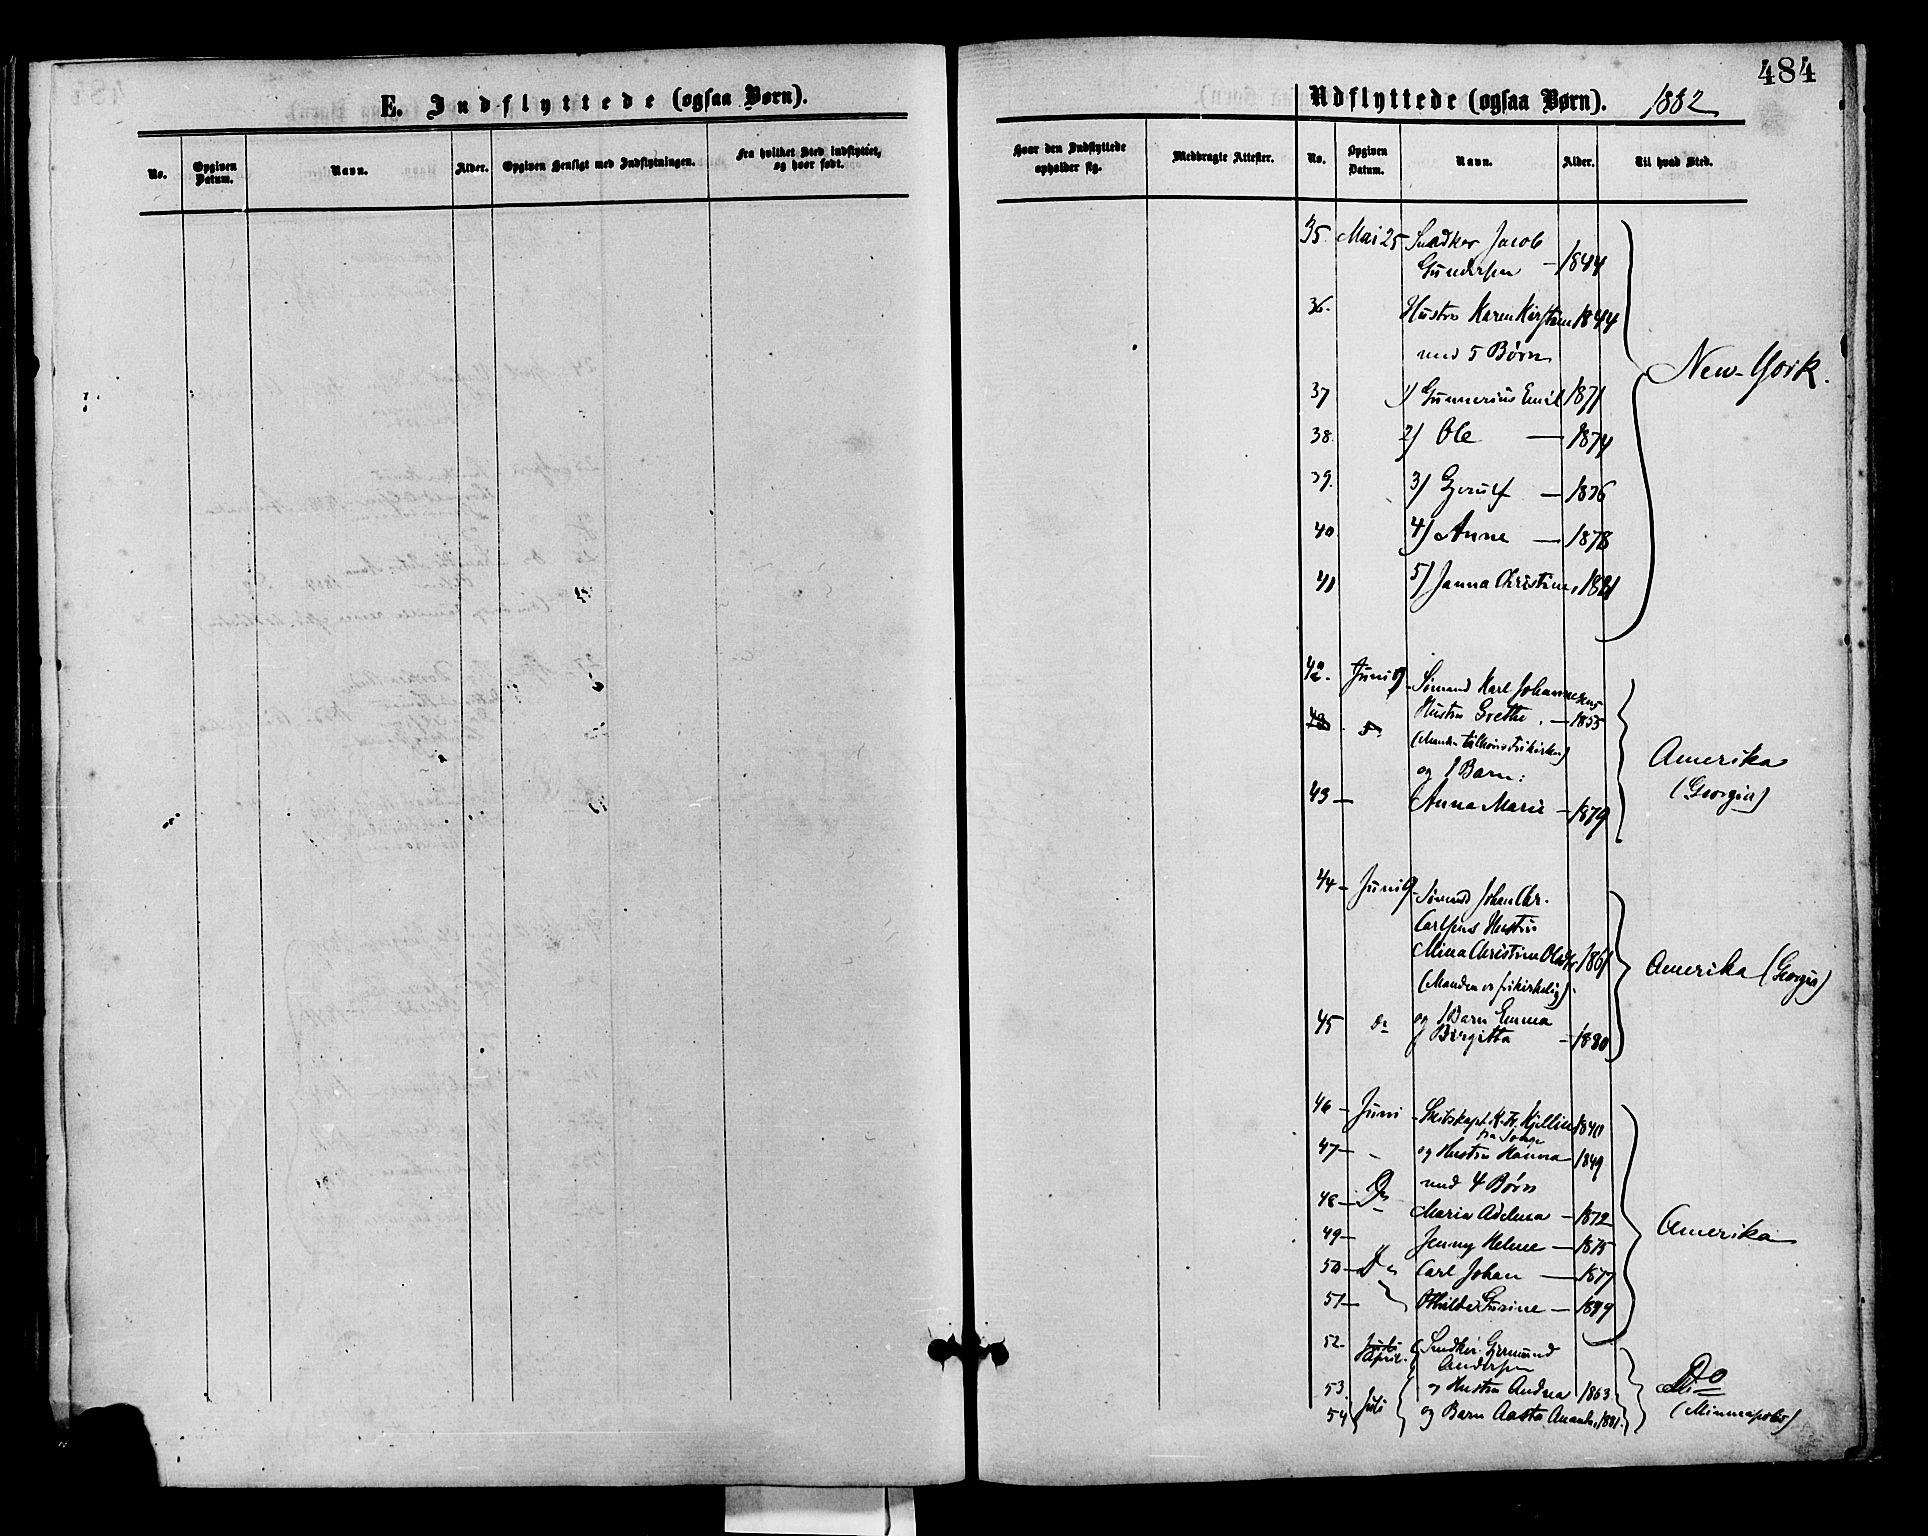 484
E. Indflyttede (ogsaa Børn).
No.
Opgiven Datum.
Navn.
Alder.
Opgiven Hensigt med Indflytningen.
Fra hvilket Sted indflyttet, og hvor født.
Udflyttede (ogsaa Børn). 1882
Hvor den Indflyttede opholder sig.
Medbragte Attester.
No.
Opgiven Datum.
Navn.
Alder.
Til hvad Sted.
35. Mai 25 Snedker Jacob
Gundersen – 1844
36. Hustru Karen Kirstine 1844
med 5 Børn
New-York.
37 1) Gunnerius Emil 1871
38. 2) Ole — 1874
39. 3) — 1876
40 4) Anne — 1878
41 5) Janna Christine, 1881
42. Juni 9 Sømand Karl Johannesens
Hustru Grethe. — 1855
(Manden tilhører Frikirken)
og 1 Barn:
Amerika
(Georgia)
43 — Anna Marie – 1879
44 – Juni 9 – Sømand Johan Chr.
Carlsens Hustru
Mina Christine 1861
(Manden er frikirkelig).
Amerika (Georgia)
45 Do og 1 Barn Emma
Birgitta – 1880
46 – Juni – Skibskapt. Kjellin 1840
47 – og Hustru Hanna 1849
med 4 Børn
48 – Do Maria Adelina – 1872
Amerika
49 – Jenny Helene — 1875
50 – Do Carl Johan — 1877
51 – Othilde — 1879
52. April Snedker Gjermund
Andersen
53. og Hustru Andrea 1863
Do
54 Juli og Barn Aasta 1881.
(Minneapolis)